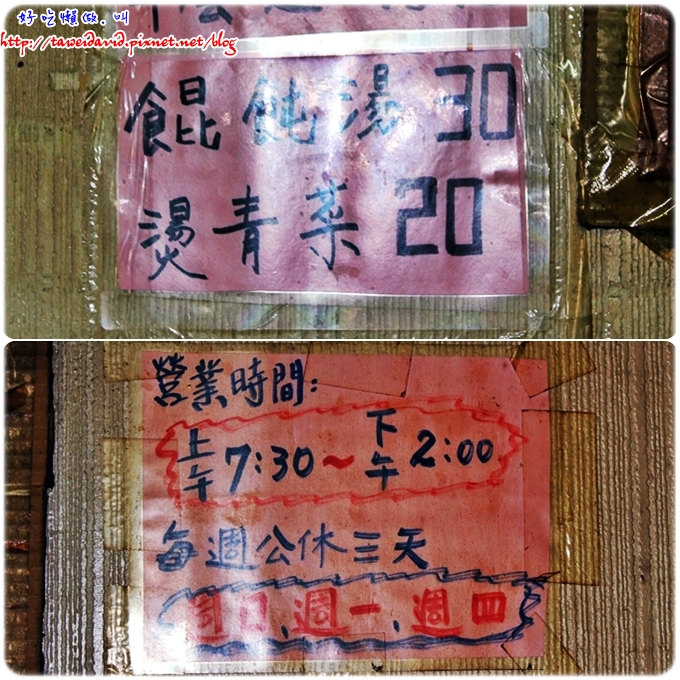 好吃懶做.叫
http://taweidavid.pixnet.net/blog
餛飩湯 30
燙青菜 20
營業時間:
上午 7:30 ~ 下午 2:00
每週公休三天
週日、週一、週四